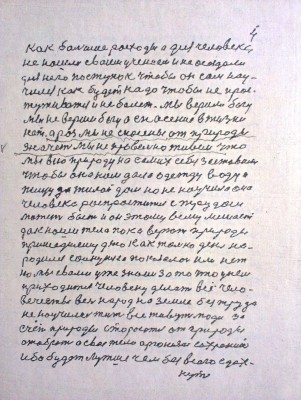 4
как большие расходы а для человека
не нашли своим учением и не создали
для него поступок чтобы он сам нау-
чился как будет надо чтобы не прос-
туживатся и не болет. мы верили богу
мы не верим богу а спасение в жизни
нет, а роз мы не спасены от природы
значет мы не правельно живем что
мы всю природу на самих себя заставели
чтобы она нам дала одежду воду и
пищу да жилой дом но не научила она
человека распроститса с трудом
может быт и он этому всему мешает
да нашем телу пока верют природы
пришедшему дню как только ден на-
родился солнушко показалос или нет
но мы своим уже знаем за то что днем
приходится человеку делать всё чело-
вечества вся народ на земле без труда
не научился жит все живут люди за
счёт природы стороются от природы
отабрат а свае тело организм сохранит
ибо будет лутше чем без всего сдох-
нуть